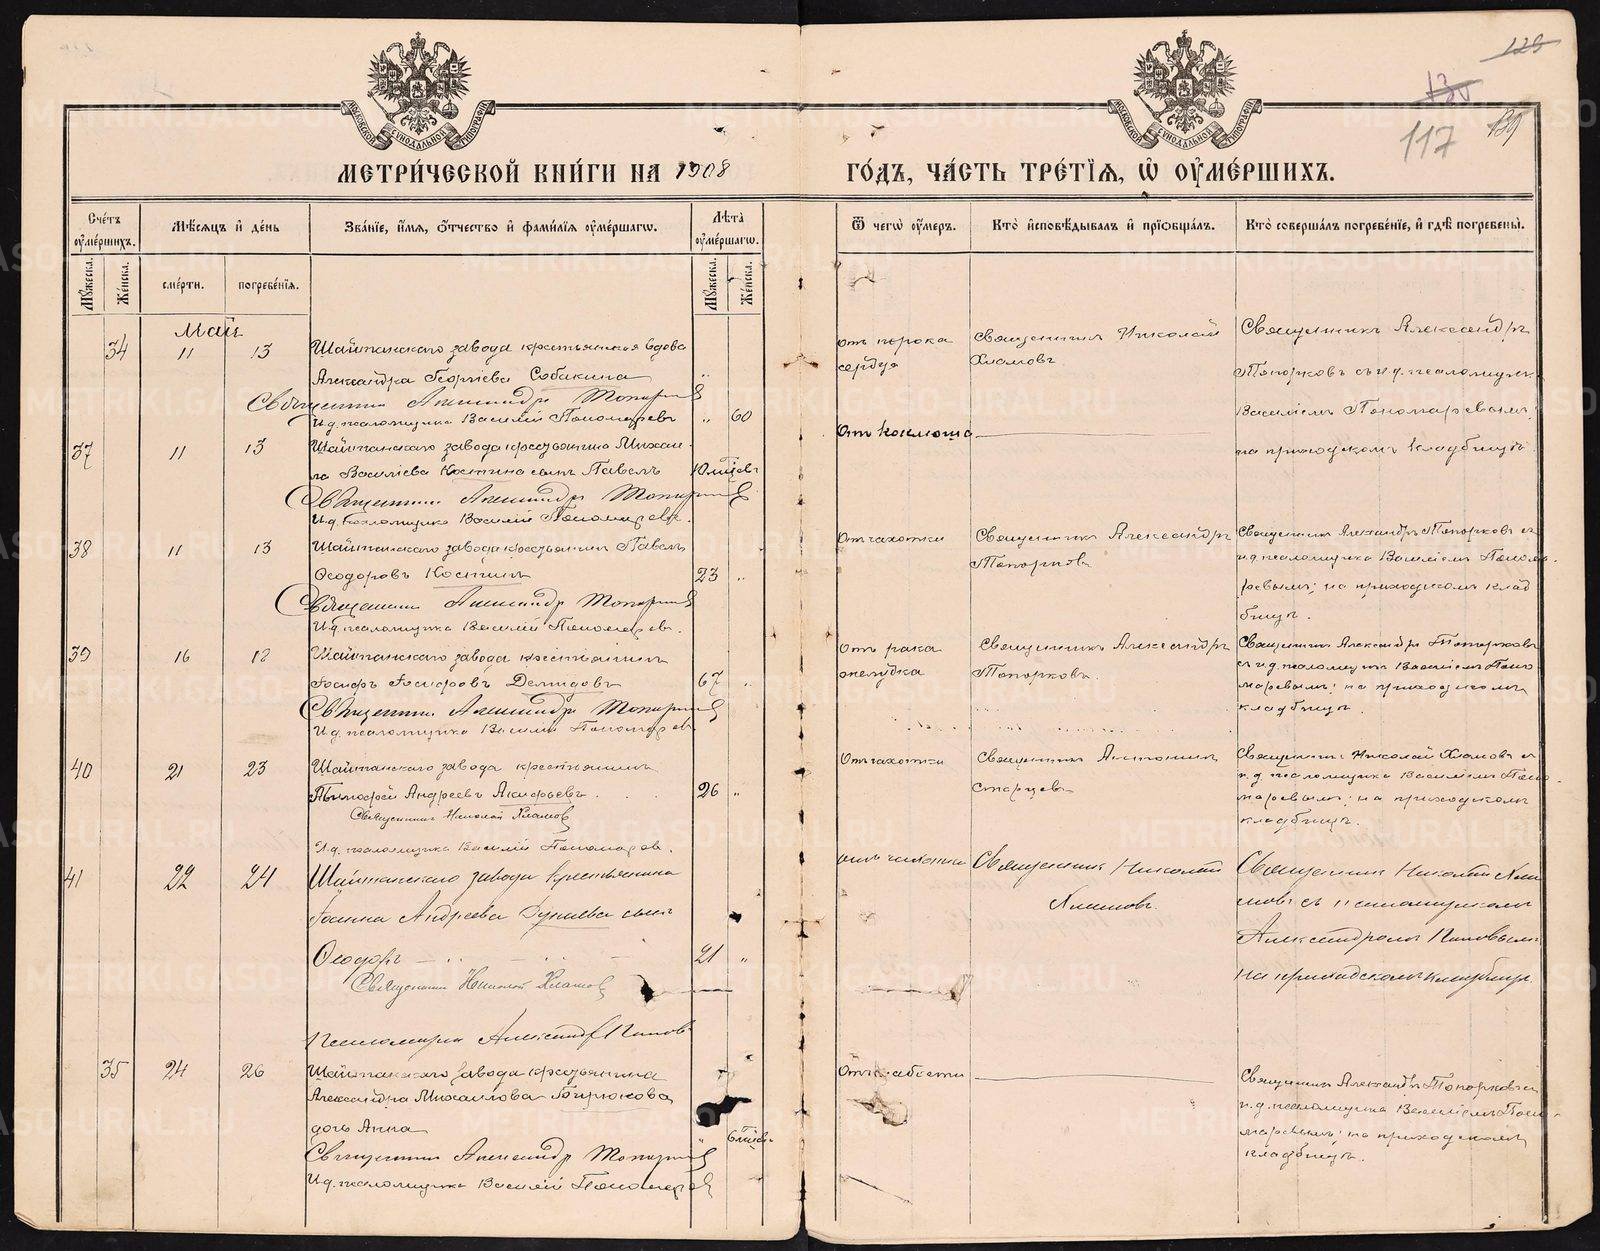 МЕТРИ́ЧЕСКОЙ КНИ́ГИ НА 1908 ГО́ДЪ, ЧА́СТЬ ТРЕ́ТІЯ, Ѡ ОУ҆МЕ́РШИХЪ.
117
Сче́тъ оумéршихъ.
Мѣ́сяцъ и де́нь
Зва́ніе, и́мя, о́тчество и фами́лія оуме́ршагѡ.
Лѣ́та оуме́ршагѡ.
Ѿ чегѡ̀ оу́меръ.
Кто̀ исповѣ́дывалъ и пріѡбща́лъ.
Кто̀ соверша́лъ погребе́ніе, и гдѣ̀ погребены̀.
Мꙋ́жеска.
Же́нска.
сме́рти.
погребе́нія.
Мꙋ́жеска.
Же́нска.
Май
34 11 13 Шайтанскаго завода крестьянская вдова
Александра Георгіева Собакина " 60
Священникъ Александръ Топорковъ
И.д. псаломщика Василій Пономаревъ
отъ порока
сердца
Священникъ Николай
Хламовъ
Священникъ Александръ
Топорковъ съ и.д. псаломщика
Василіемъ Пономаревымъ;
на приходскомъ кладбищѣ.
37 11 13 Шайтанскаго завода крестьянина Михаи-
ла Васильева Костина сынъ Павелъ 10 мѣсяцевъ
Священникъ Александръ Топорковъ
И.д. псаломщика Василій Пономаревъ.
Отъ коклюша
38 11 13 Шайтанскаго завода крестьянинъ Павелъ
Ѳеодоровъ Костинъ 23 "
Священникъ Александръ Топорковъ
И.д. псаломщика Василій Пономаревъ.
Отъ чахотки
Священникъ Александръ
Топорковъ
Священникъ Александръ Топорковъ съ
и.д. псаломщика Василіемъ Понома-
ревымъ; на приходскомъ клад-
бищѣ.
39 16 18 Шайтанскаго завода крестьянинъ
Іосифъ Іосифовъ Демидовъ 67 "
Священникъ Александръ Топорковъ
И.д. псаломщика Василій Пономаревъ
Отъ рака
желудка
Священникъ Александръ
Топорковъ.
Священникъ Александръ Топорковъ
съ и.д. псаломщика Василіемъ Поно-
маревымъ; на приходскомъ
кладбищѣ.
40 21 23 Шайтанскаго завода крестьянинъ
Тимофей Андреевъ Акифьевъ 26 "
Священникъ Николай Хламовъ
И.д. псаломщика Василій Пономаревъ.
Отъ чахотки
Священникъ Антонинъ
Старцевъ
Священникъ Николай Хламовъ съ
и.д. псаломщика Василіемъ Поно-
маревымъ; на приходскомъ
кладбищѣ.
41 22 24 Шайтанскаго завода крестьянина
Іоанна Андреева сынъ
Ѳеодоръ 21 "
Священникъ Николай Хламовъ
Псаломщикъ Александръ Поповъ
отъ чахотки
Священникъ Николай
Хламовъ.
Священникъ Николай Хла-
мовъ съ псаломщикомъ
Александромъ Поповымъ
на приходскомъ кладбищѣ.
35 24 26 Шайтанскаго завода крестьянина
Александра Михайлова Бирюкова
дочь Анна " 6 мѣсяцевъ
Священникъ Александръ Топорковъ
И.д. псаломщика Василій Пономаревъ
Отъ слабости
Священникъ Александръ Топорковъ съ
и.д. псаломщика Василіемъ Поно-
маревымъ; на приходскомъ
кладбищѣ.
METRIKI.GASO-URAL.RU